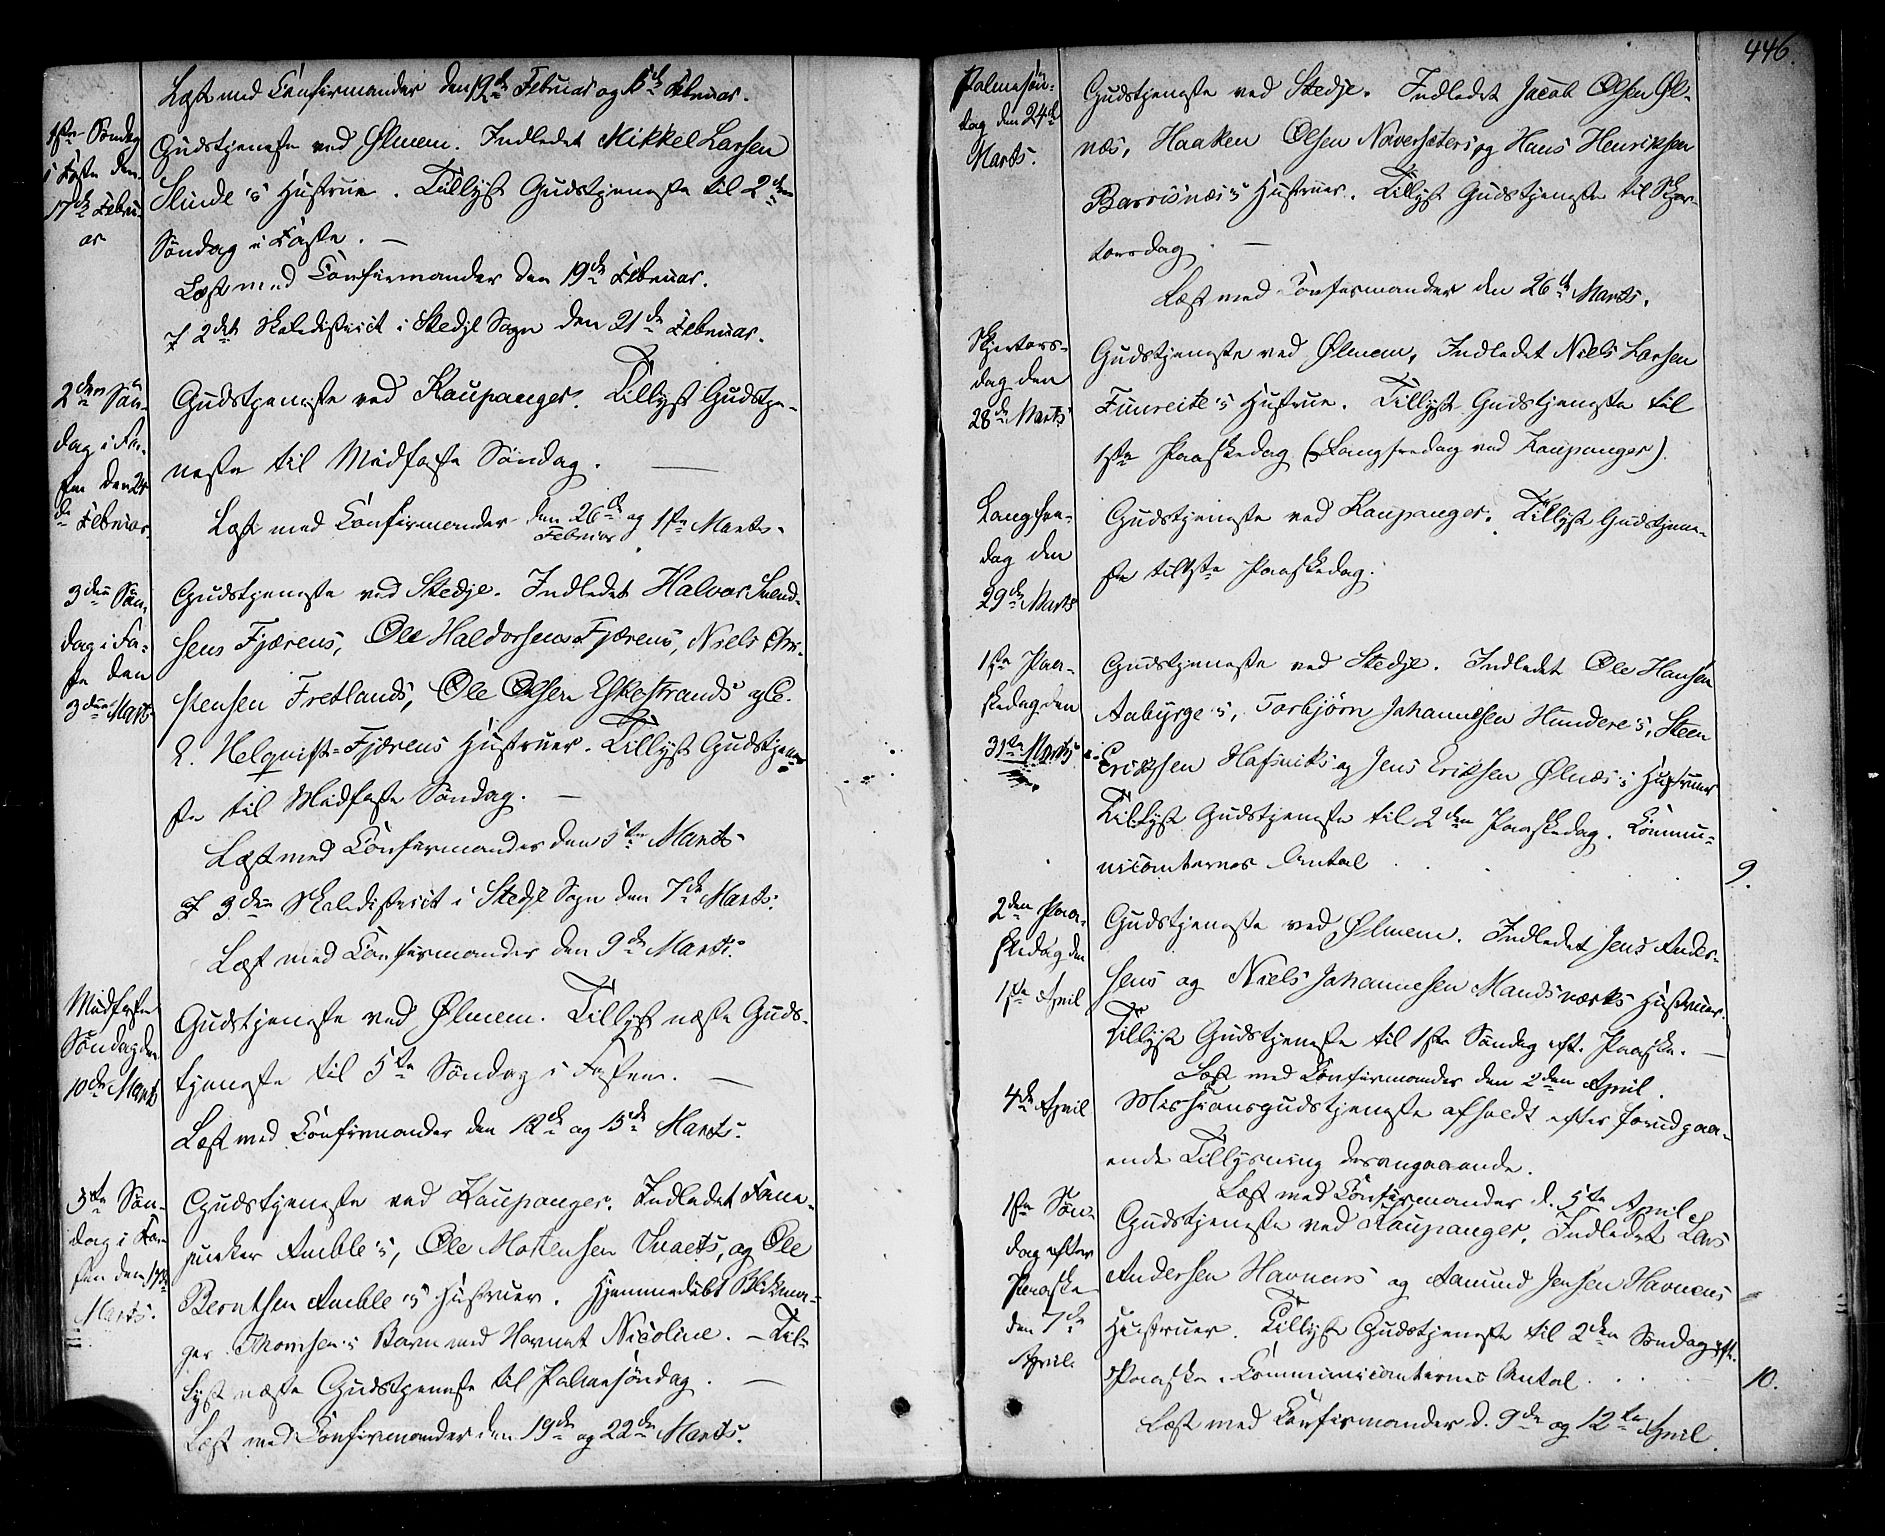 Læst med Confirmander den 12te Februar og 15de Februar.
1ste Søndag
i Faste den
17de Febru-
ar
Gudstjeneste ved Ølmem. Indledet Mikkel Larsen
Slinde's Hustrue. Tillyst Gudstjeneste til 2den
Søndag i Faste. —
Læst med Confirmander den 19de Februar.
I 2det Skoledistrict i Stedje Sogn den 21de Februar.
2den Søn-
dag i Fa-
sten den 24
de Februar.
Gudstjeneste ved Kaupanger. Tillyst Gudstje-
neste til Midfaste Søndag. —
Læst med Confirmander den 26de og 1ste Marts.
Februar
3die Søn-
dag i Fa-
ste den
3die Marts
Gudstjeneste ved Stedje. Indledet Halvor Svend-
sens Fjærens, Ole Haldorsens Fjærens, Niels Chri-
stensen Fretlands, Ole Olsen Eskestrands og C.
E. Helqvist-Fjærens Hustruer. Tillyst Gudstjene-
ste til Midfaste Søndag. —
Læst med Confirmander den 5te Marts
I 3die Skoledistrict i Stedje Sogn den 7de Marts.
Læst med Confirmander den 9de Marts.
Midfaste
Søndag den
10de Marts
Gudstjeneste ved Ølmem. Tillyst næste Guds-
tjeneste til 5te Søndag i Fasten. —
Læst med Confirmander den 12de og 15de Marts.
5te Søn-
dag i Fa-
sten den 17de
Marts.
Gudstjeneste ved Kaupanger. Indledet Fane-
junker Amble's, Ole Mostensen Vnaets, og Ole
Berntsen Amble's Hustruer. Hjemmedøbt Blikma-
ger Thomsen's Barn med Navnet Nicoline. — Til-
lyst næste Gudstjeneste til Palmesøndag. —
Læst med Confirmander den 19de og 22de Marts.
446.
Palmesøn-
dag den 24de
Marts.
Gudstjeneste ved Stedje. Indledet Jacob Olsen Øl-
næs, Haaken Olsen Navarsæters og Hans Henriksen
Barsnæs's Hustruer. Tillyst Gudstjeneste til Skjær-
torsdag. —
Læst med Confirmander den 26de Marts.
Skjertors-
dag den
28de Marts
Gudstjeneste ved Ølmem. Indledet Niels Larsen
Fuureite's Hustrue. Tillyst Gudstjeneste til
1ste Paaskedag (Langfredag ved Kaupanger).
Langfre-
dag den
29de Marts
Gudstjeneste ved Kaupanger. Tillyst Gudstjene-
ste til 1ste Paaskedag.
1ste Paa-
skedag den
31te Marts
Gudstjeneste ved Stedje. Indledet Ole Hansen
Aabyrge's, Torbjørn Johannesen Hundere's, Steen
Eriksen Hafsviks og Jens Eriksen Ølnæs's Hustruer
Tillyst Gudstjeneste til 2den Paaskedag. Commu-
nicanternes Antal . . . 9.
2den Paa-
skedag den
1ste April
Gudstjeneste ved Ølmem. Indledet Jens Ander-
sens og Niels Johannesen Mandsværks Hustruer.
Tillyst Gudstjeneste til 1ste Søndag eft. Paaske. —
Læst med Confirmander den 2den April.
4de April
Missionsgudstjeneste afholdt efter forudgaa-
ende Tillysning desangaaende.
Læst med Confirmander d. 5te April
1ste Søn-
dag efter
Paaske
den 7de
April.
Gudstjeneste ved Kaupanger. Indledet Lars
Andersen Havnens og Aamund Jensen Havnens
Hustruer. Tillyst Gudstjeneste til 2den Søndag eft.
Paaske. Communicanternes Antal . . . 10.
Læst med Confirmander d. 9de og 12te April.